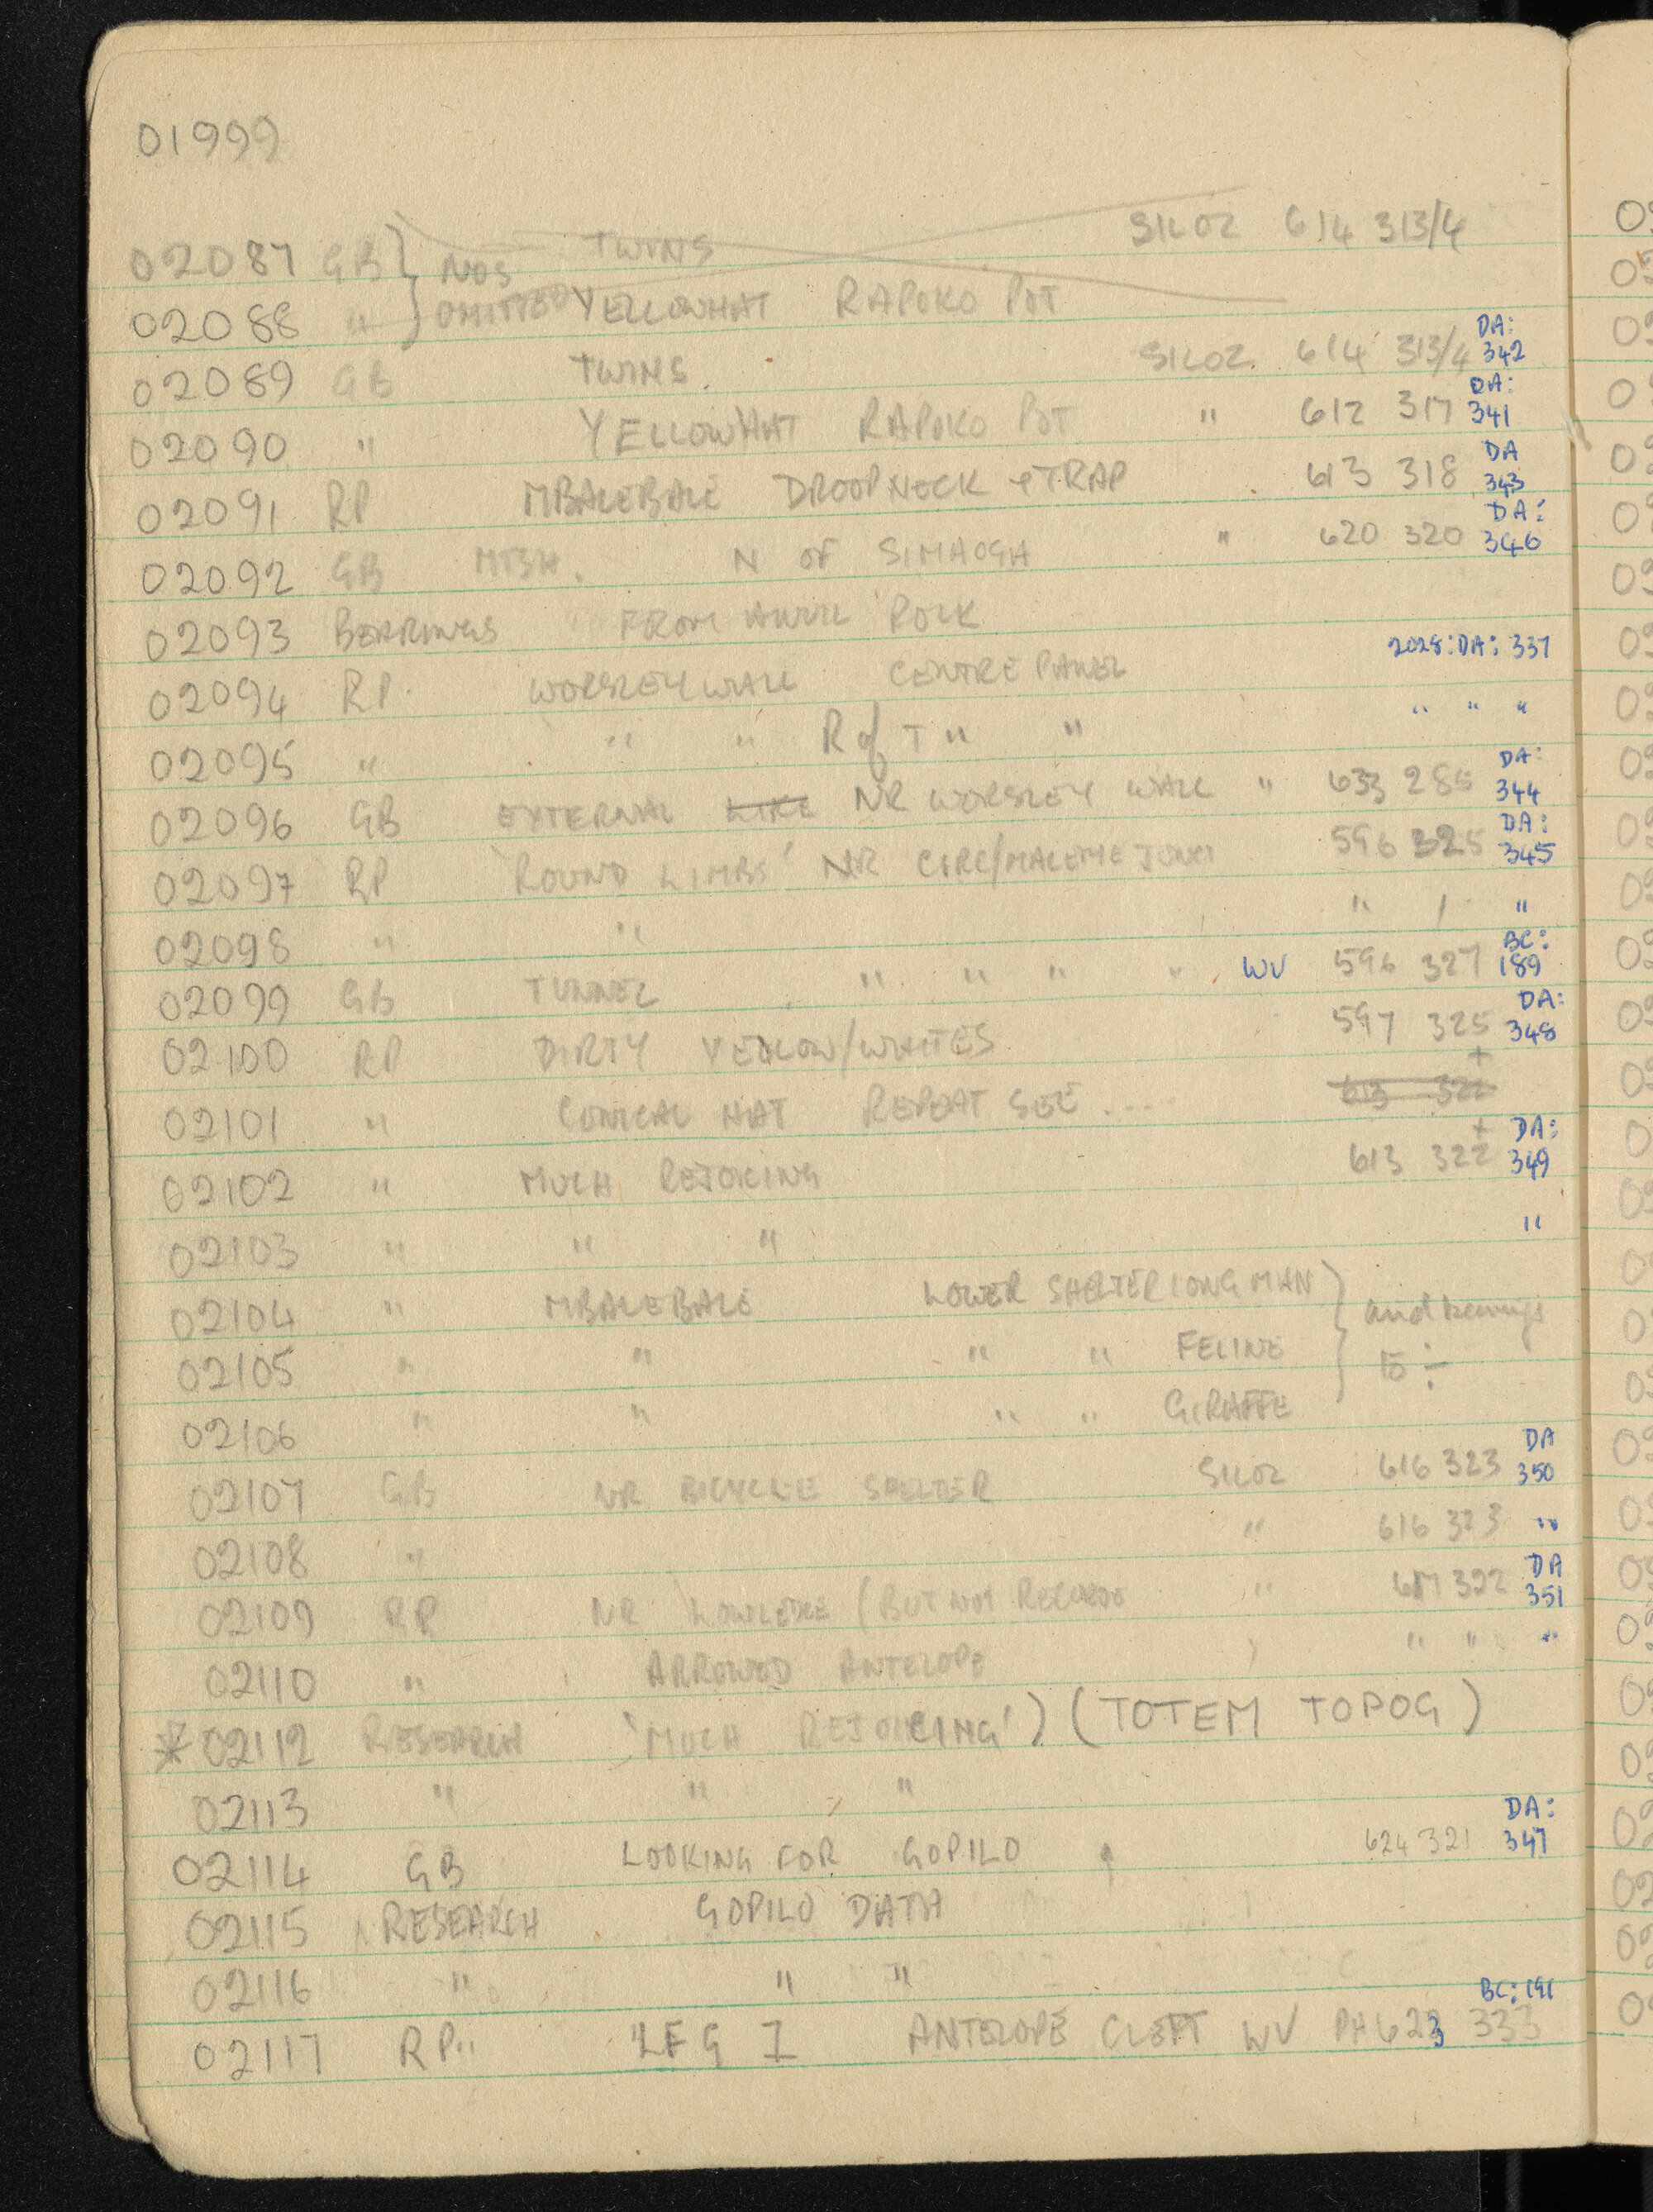 01999
02087 GB } NOS TWINS SILOZ 614 313/4
02088 " } OMITTED YELLOWHAT RAPOKO POT
02089 GB TWINS SILOZ 614 313/4 DA: 342
02090 " YELLOWHAT RAPOKO POT " 612 317 DA: 341
02091 RP MBALEBALE DROOPNECK + TRAP 613 318 DA 343
02092 GB MTSH. N OF SIMAOGA " 620 320 DA: 346
02093 BERRINGS FROM ANVIL ROCK
02094 RP WORSLEY WALL CENTRE PANEL 2028:DA: 337
02095 " " " R of T " " " " "
02096 GB EXTERNAL NR WORSLEY WALL " 633 285 DA: 344
02097 RP 'ROUND LIMBS' NR CIRC/MALEME JUNCT 596 325 DA: 345
02098 " " " / "
02099 GB TUNNEL " " " " WV 596 327 BC: 189
02100 RP DIRTY YELLOW/WHITES 597 325 DA: 348
02101 " CONICAL HAT REPEAT SEE .... + 613 322
02102 " MUCH REJOICING 613 322 + DA: 349
02103 " " " "
02104 " MBALEBALE LOWER SHELTER LONG MAN } and
02105 " " " " FELINE } to :-
02106 " " " " GIRAFFE
02107 GB NR BICYCLE SHELTER SILOZ 616 323 DA 350
02108 " " 616 323 "
02109 RP NR LOWLEDGE (BUT NOT " 617 322 DA 351
02110 " ARROWED ANTELOPE ) " " "
* 02112 RESEARCH 'MUCH REJOICING') (TOTEM TOPOG)
02113 " " "
02114 GB LOOKING FOR GOPILO 624 321 DA: 347
02115 RESEARCH GOPILO DATA
02116 " " "
02117 RP " LEG I ANTELOPE CLEFT WV PH 623 333 BC: 191